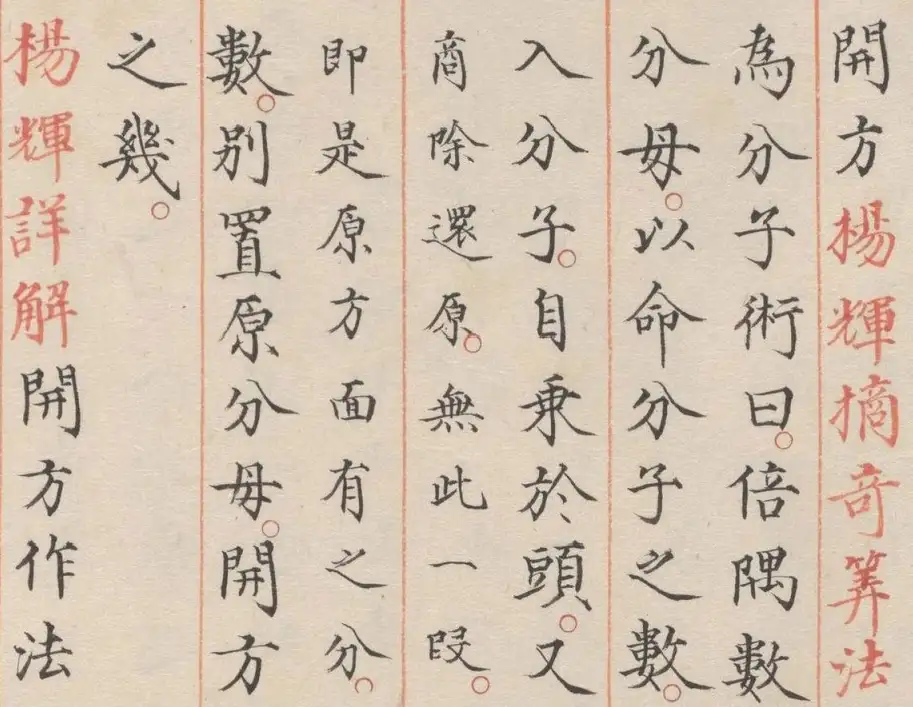 開方楊輝摘奇筭法
為分子術曰。倍隅數
分母。以命分子之數。
入分子。自乘於頭。又
商除還原。無此一段。
即是原方面有之分。
數。別置原分母。開方
之幾。
楊輝詳解開方作法